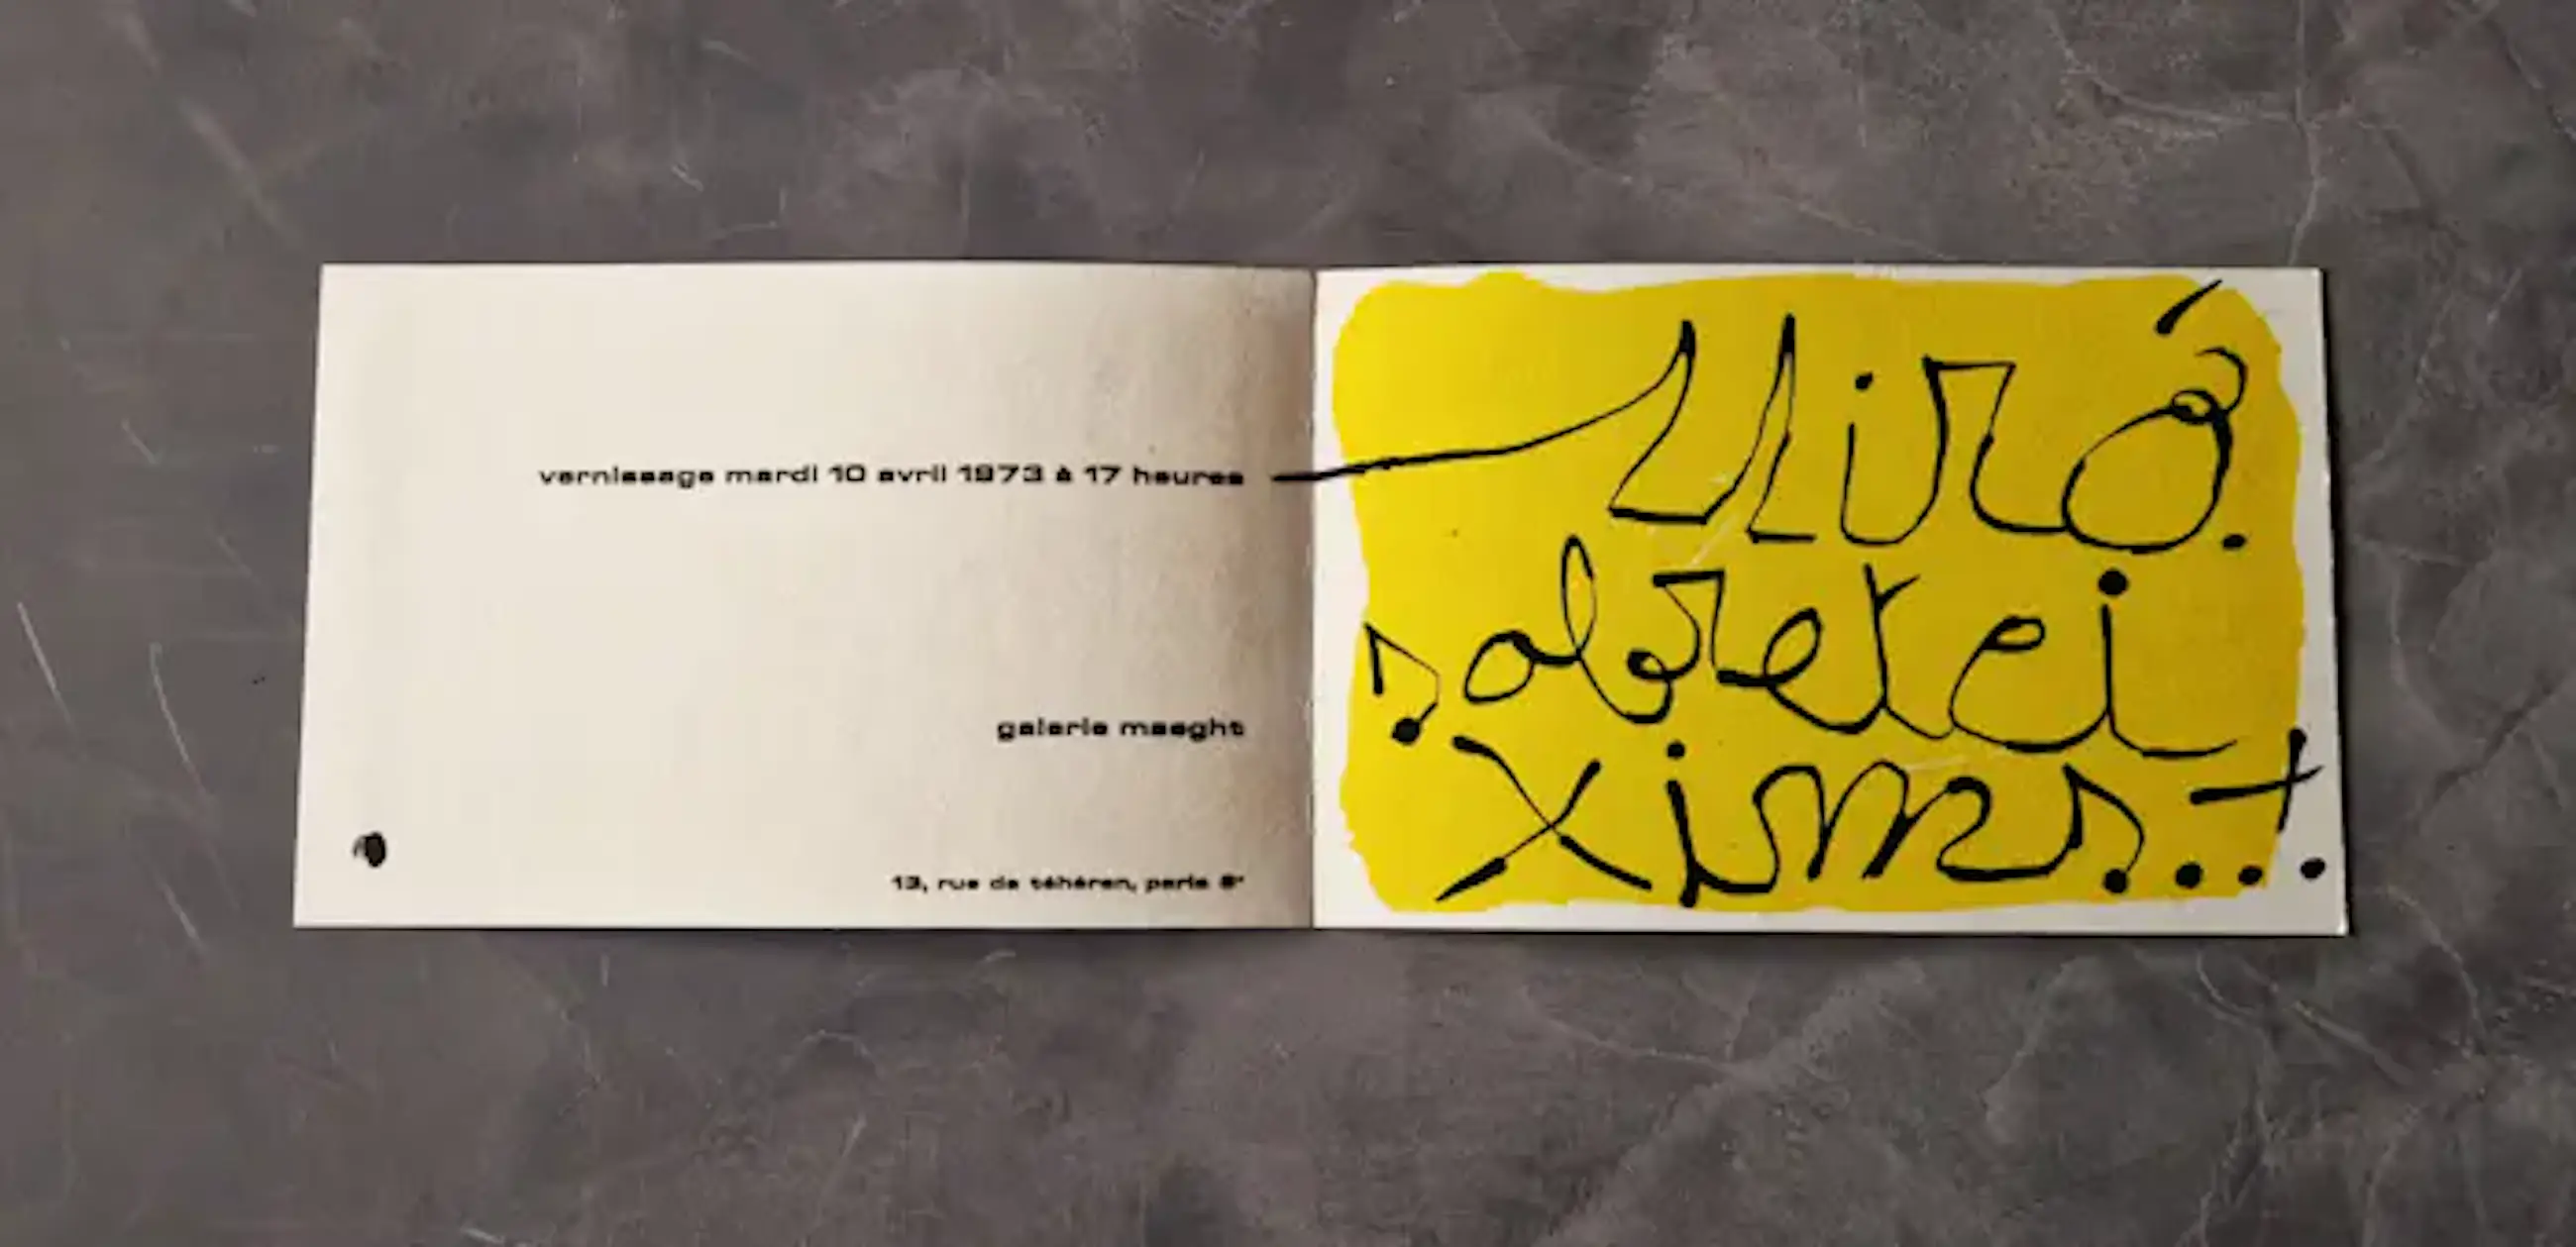 vernissage mardi 10 avril 1973 à 17 heures
galerie maeght
13, rue de téhéran, paris 8e
Miró
sobreteixims